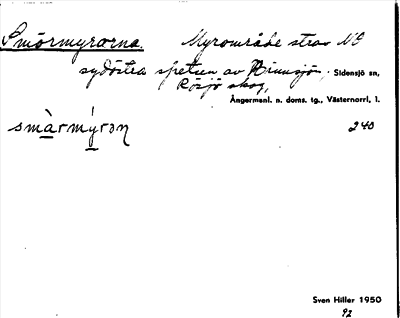 Smörmyrorna. Myrområde strax NO
sydöstra spetsen av Rinnsjön, Sidensjö sn,
Rösjö skog,
Ångermanl. n. doms. tg., Västernorrl, l.
smàrmýrɔn 240
Sven Hiller 1950
92